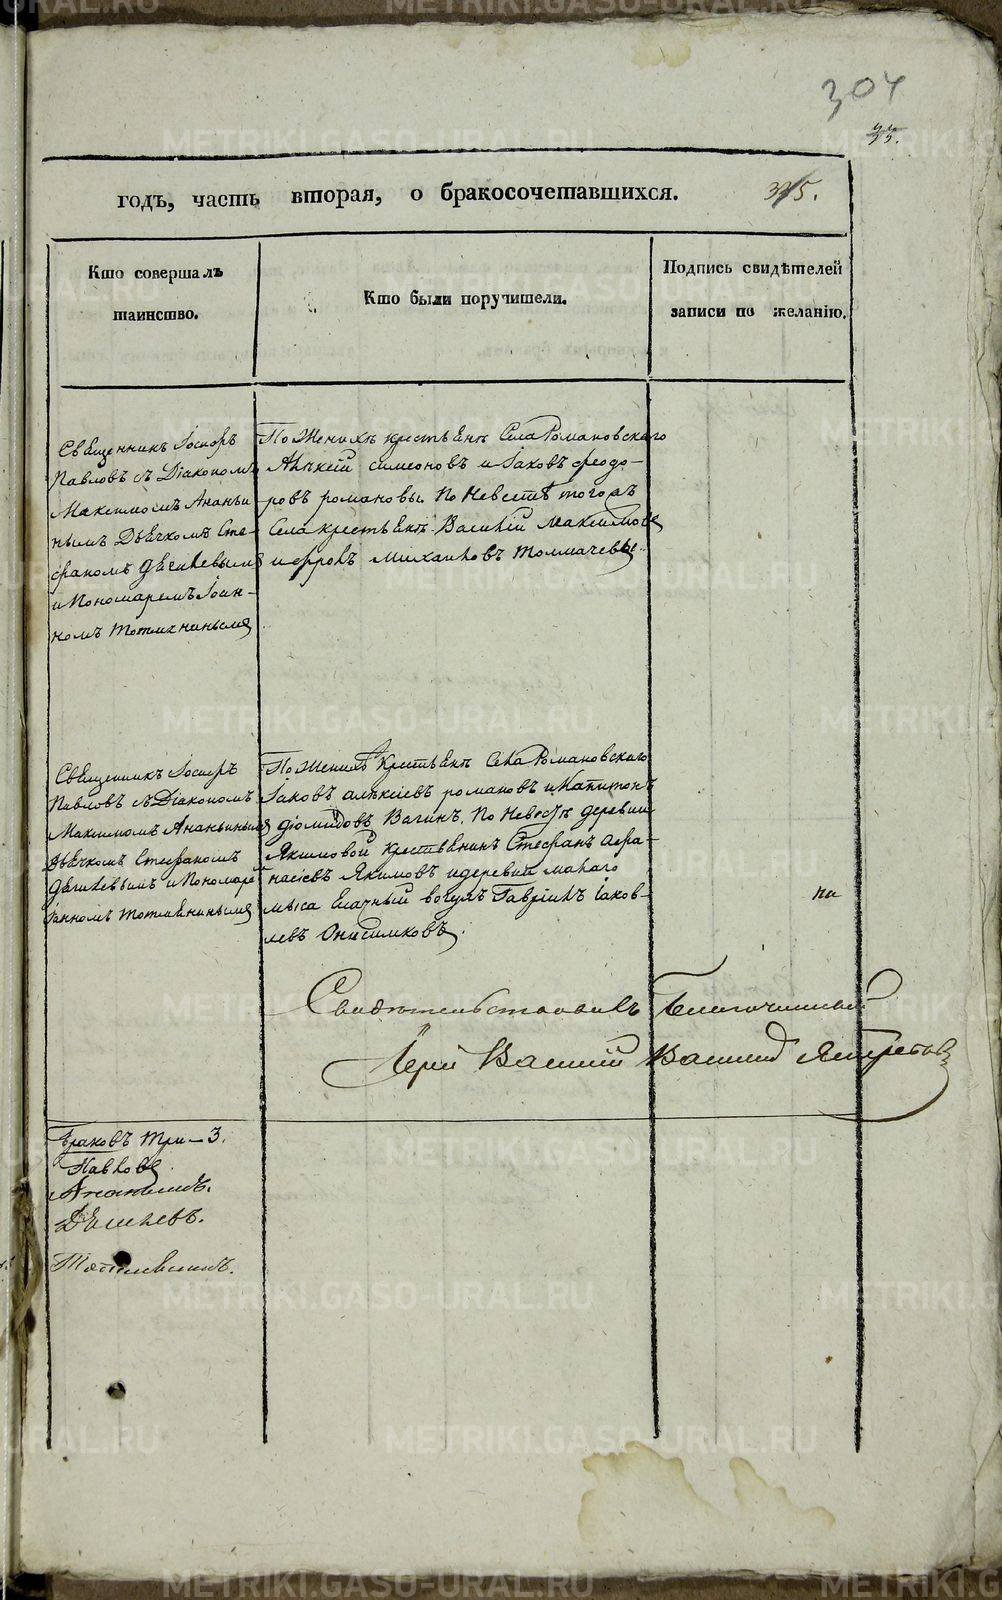 304
годъ, часть вторая, о бракосочетавшихся.
Кто совершалъ
таинство.
Кто были поручители.
Подпись свидѣтелей
записи по желанію.
Священникъ Іосифъ
Павловъ съ Діакономъ
Максимомъ Ананьи
нымъ Дьячкомъ Сте-
фаномъ Дягилевымъ
и Пономаремъ Іоан-
номъ
По Женихѣ крестьяне Села Романовскаго
Алѣксій симеоновъ и Іаковъ феодо-
ровъ романовы. По Невестѣ тогожъ
Села крестьяне Василій Максимовъ
и фролъ михаиловъ толмачевы.
Священникъ Іосифъ
Павловъ съ Діакономъ
Максимомъ Ананьинымъ
Дьячкомъ Стефаномъ
Дягилевымъ и Пономаре
По Женихѣ Крестьяне Села Романовскаго
Іаковъ алѣксіевъ романовъ и Капитонъ
діомидовъ Вагинъ. По Невестѣ деревни
Якимовой крестьянинъ Стефанъ афа-
насіевъ Якимовъ и деревни малаго
мыса Ясачный вогулъ Гавріилъ Іаков-
левъ Онисимковъ.
на
Свидѣтельствовалъ Благочинный
Іерей Василій
Браковъ три – 3.
Павловъ
Ананьинъ.
Дягилевъ.